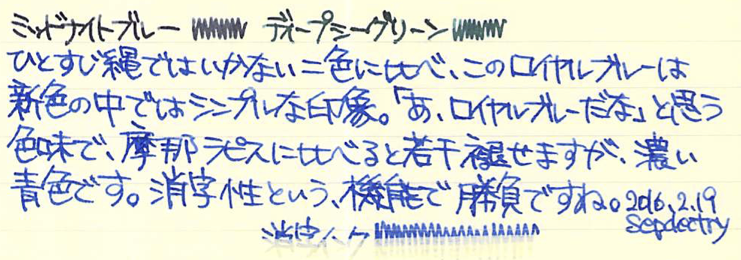 ミッドナイトブルー ディープシーグリーン
ひとすじ縄ではいかない二色に比べ、このロイヤルブルーは
新色の中ではシンプルな印象。「あ、ロイヤルブルーだな」と思う
色味で、摩那ラピスに比べると若干褪せますが、濃い
青色です。消字性という、機能で勝負ですね。2016.2.19
sepdectry
消字インク